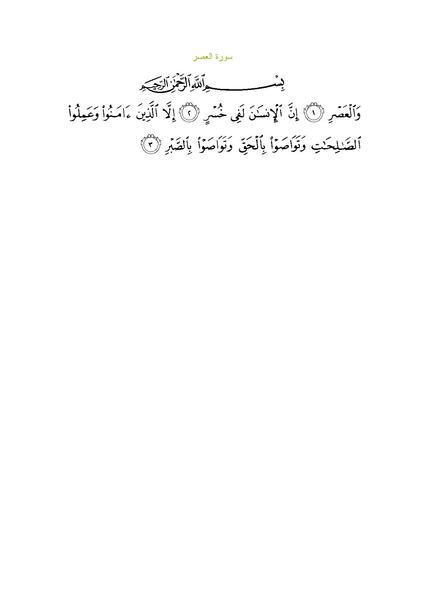 سورة العصر
بِسْمِ ٱللَّهِ ٱلرَّحْمَٰنِ ٱلرَّحِيمِ
وَٱلْعَصْرِ ١ إِنَّ ٱلْإِنسَٰنَ لَفِى خُسْرٍ ٢ إِلَّا ٱلَّذِينَ ءَامَنُوا۟ وَعَمِلُوا۟
ٱلصَّٰلِحَٰتِ وَتَوَاصَوْا۟ بِٱلْحَقِّ وَتَوَاصَوْا۟ بِٱلصَّبْرِ ٣